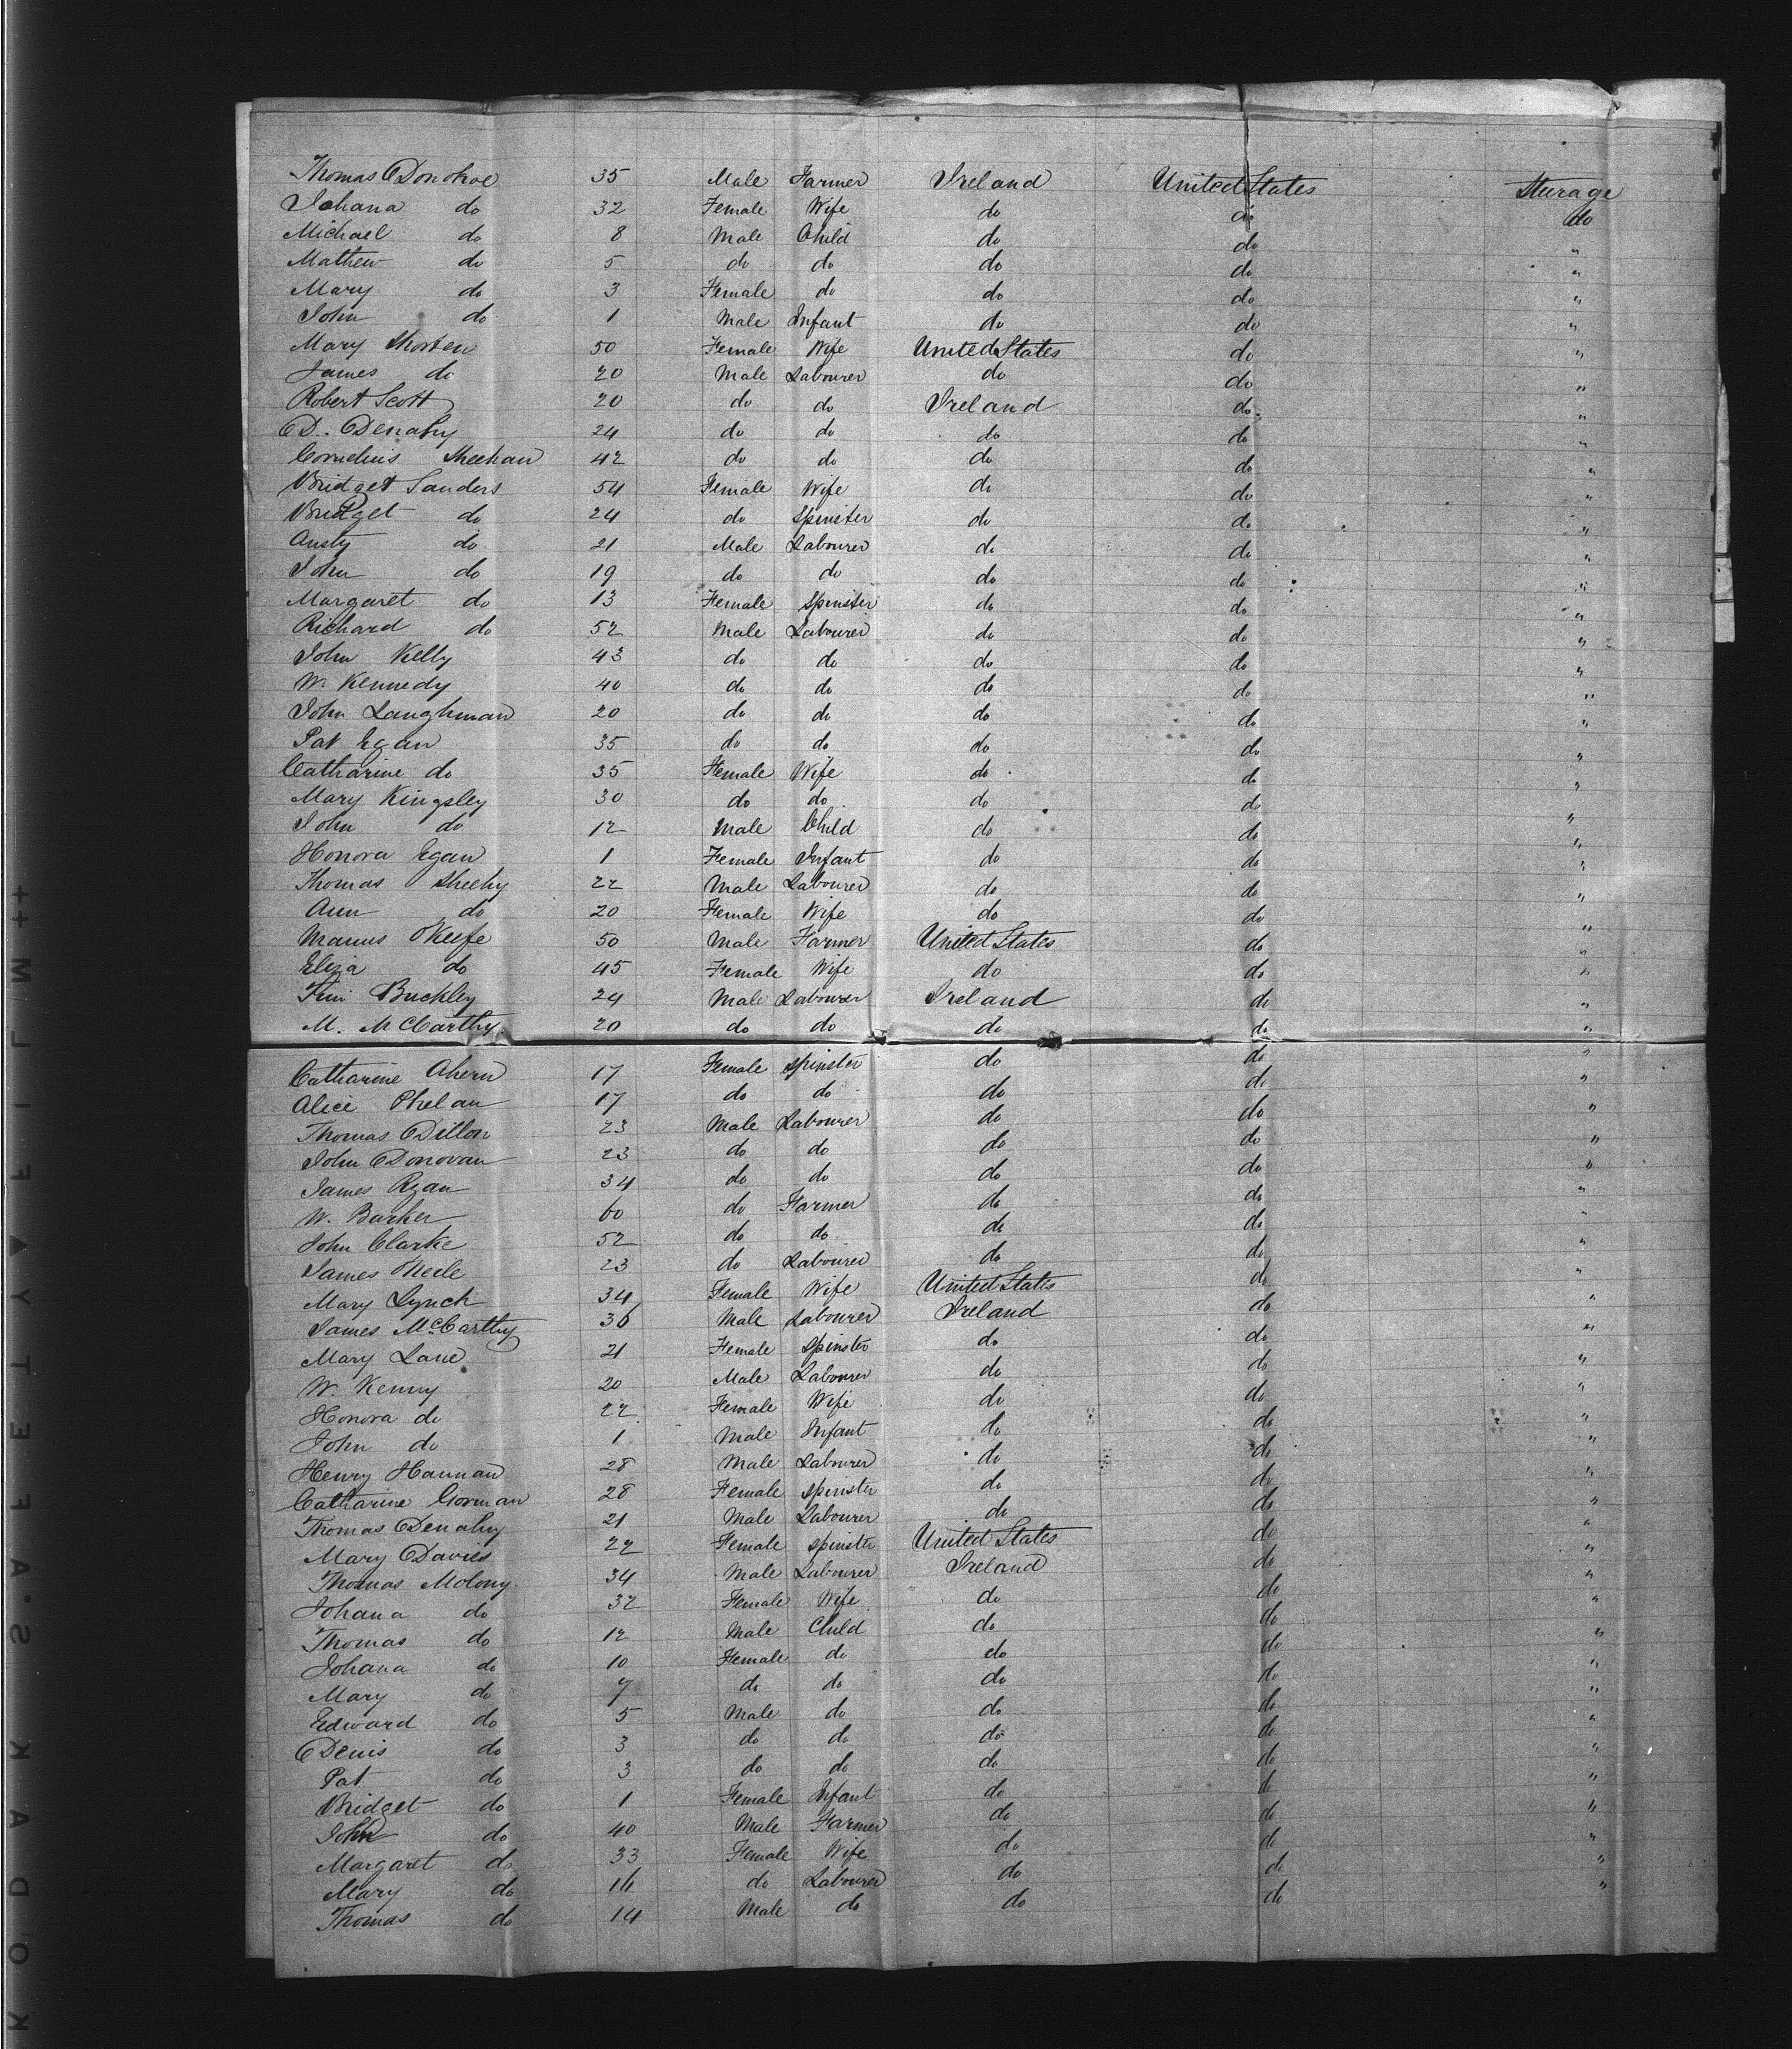 Thomas Donohoe 35 Male Farmer Ireland United States Sturage
Johana do 32 Female Wife do do do
Michael do 8 Male Child do do "
Mathew do 5 do do do do "
Mary do 3 Female do do do "
John do 1 Male Infant do do "
Mary 50 Female Wife United States do "
James do 20 Male Labourer do do "
Robert Scott 20 do do Ireland do "
D. Denahy 24 do do do do "
Cornelius Sheehan 42 do do do do "
Bridget Sanders 54 Female Wife do do "
Bridget do 24 do Spinster do do "
Austy do 21 Male Labourer do do "
John do 19 do do do do "
Margaret do 13 Female Spinster do do "
Richard do 52 Male Labourer do do "
John Kelly 43 do do do do "
W. Kennedy 40 do do do do "
John Laughman 20 do do do do "
Pat Egan 35 do do do do "
Catharine do 35 Female Wife do do "
Mary Kingsley 30 do do do do "
John do 12 Male Child do do "
Honora Egan 1 Female Infant do do "
Thomas Sheehy 22 Male Labourer do do "
Ann do 20 Female Wife do do "
Manus OKeefe 50 Male Farmer United States do "
Eliza do 45 Female Wife do do "
Tim Buckley 24 Male Labourer Ireland do "
M. McCarthy 20 do do do do "
Catharine Ahern 17 Female Spinster do do "
Alice Phelan 17 do do do do "
Thomas Dillon 23 Male Labourer do do "
John Donovan 23 do do do do "
James Ryan 34 do do do do "
W. Barker 60 do Farmer do do "
John Clarke 52 do do do do "
James ONeile 23 do Labourer do do "
Mary Lynch 34 Female Wife United States do "
James McCarthy 36 Male Labourer Ireland do "
Mary Lane 21 Female Spinster do do "
W. Kenny 20 Male Labourer do do "
Honora do 22 Female Wife do do "
John do 1 Male Infant do do "
Henry Hannan 28 Male Labourer do do "
Catharine Gorman 28 Female Spinster do do "
Thomas Denahy 21 Male Labourer do do "
Mary Davies 22 Female Spinster United States do "
Thomas Molony 34 Male Labourer Ireland do "
Johana do 32 Female Wife do do "
Thomas do 12 Male Child do do "
Johana do 10 Female do do do "
Mary do 7 do do do do "
Edward do 5 Male do do do "
Denis do 3 do do do do "
Pat do 3 do do do do "
Bridget do 1 Female Infant do do "
John do 40 Male Farmer do do "
Margaret do 33 Female Wife do do "
Mary do 16 do Labourer do do "
Thomas do 14 Male do do do "
KODAK·SAFETY▲FILM ++